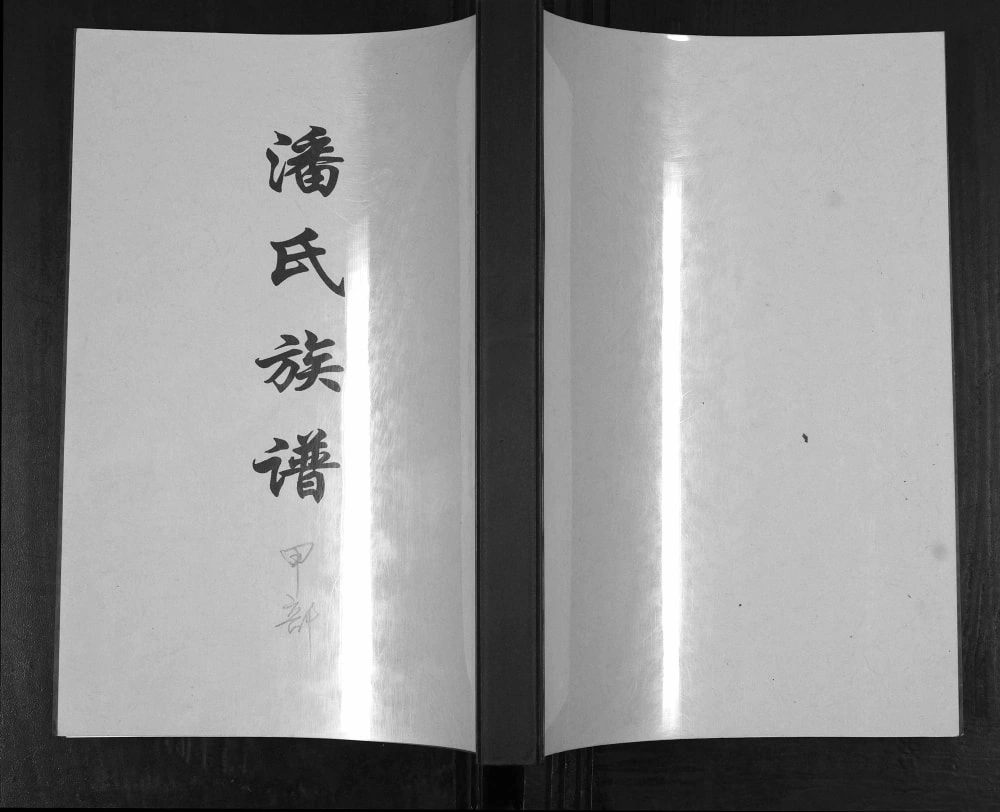 潘氏族谱
甲部